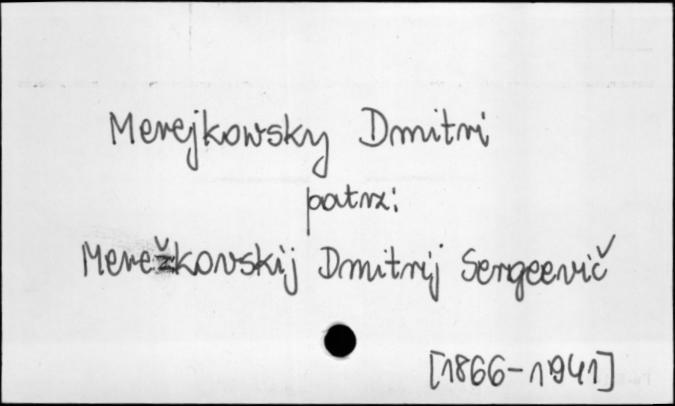 Merejkowsky Dmitri
patrz:
Merežkovskij Dmitrij Sergeevič
[1866-1941]